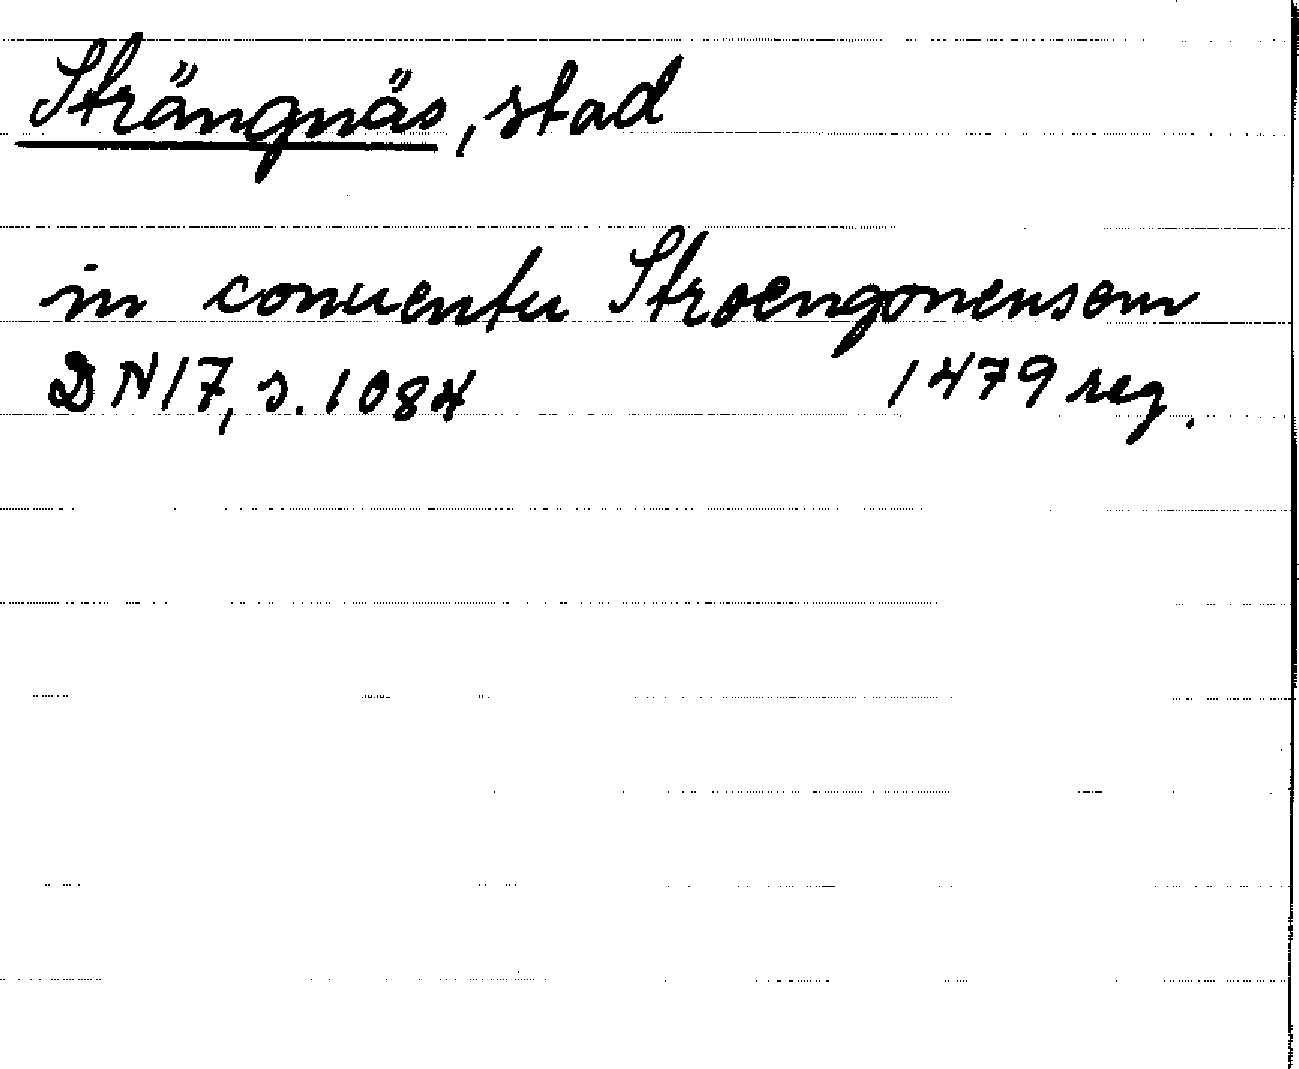 Strängnäs, stad
in conuentu Stroengonensem
DN17, s. 1084 1479 reg.